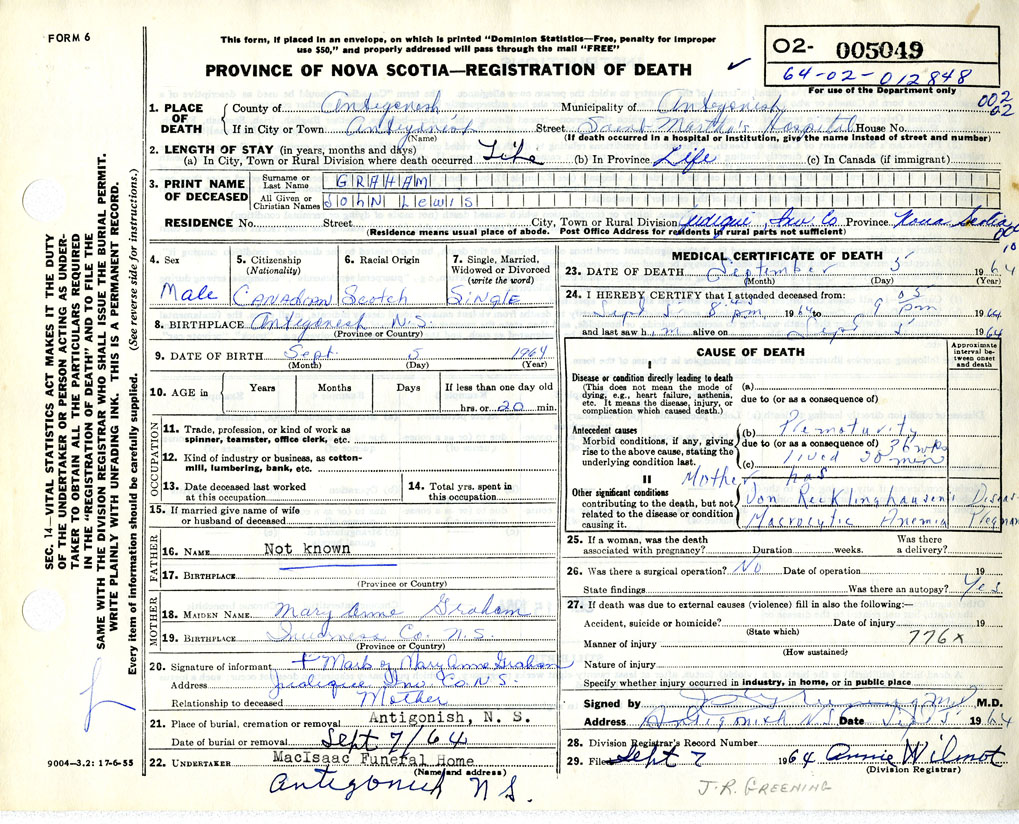 FORM 6
This form, if placed in an envelope, on which is printed "Dominion Statistics—Free, penalty for improper
use $50," and properly addressed will pass through the mail "FREE"
PROVINCE OF NOVA SCOTIA—REGISTRATION OF DEATH
02- 005049
64-02-012848
For use of the Department only
002
02
1. PLACE OF DEATH
County of Antigonish Municipality of Antigonish
If in City or Town Antigonish Street Saint Martha's Hospital House No.
(Name) (If death occurred in a hospital or institution, give the name instead of street and number)
2. LENGTH OF STAY (in years, months and days)
(a) In City, Town or Rural Division where death occurred Life (b) In Province Life (c) In Canada (if immigrant)
3. PRINT NAME OF DECEASED
Surname or Last Name GRAHAM
All Given or Christian Names John Lewis
RESIDENCE No. Street City, Town or Rural Division Judique Inv. Co Province Nova Scotia
(Residence means usual place of abode. Post Office Address for residents in rural parts not sufficient)
4. Sex Male
5. Citizenship (Nationality) Canadian
6. Racial Origin Scotch
7. Single, Married, Widowed or Divorced (write the word) Single
8. BIRTHPLACE Antigonish N.S.
(Province or Country)
9. DATE OF BIRTH Sept. 5 1964
(Month) (Day) (Year)
10. AGE in Years Months Days If less than one day old
hrs. or 20 min.
OCCUPATION
11. Trade, profession, or kind of work as spinner, teamster, office clerk, etc.
12. Kind of industry or business, as cotton-mill, lumbering, bank, etc.
13. Date deceased last worked at this occupation
14. Total yrs. spent in this occupation
15. If married give name of wife or husband of deceased
FATHER
16. NAME Not known
17. BIRTHPLACE
(Province or Country)
MOTHER
18. MAIDEN NAME Mary Anne Graham
19. BIRTHPLACE Inverness Co. N.S.
(Province or Country)
20. Signature of informant + Mark of Mary Anne Graham
Address Judique Inv. Co N.S.
Relationship to deceased Mother
21. Place of burial, cremation or removal Antigonish, N. S.
Date of burial or removal Sept 7/64
22. UNDERTAKER MacIsaac Funeral Home
(Name and address)
Antigonish N S.
MEDICAL CERTIFICATE OF DEATH
23. DATE OF DEATH September 5 1964
(Month) (Day) (Year)
24. I HEREBY CERTIFY that I attended deceased from:
Sept 5 - 8:45 pm 1964 to 9 05 pm 1964
and last saw him alive on Sept 5 1964
CAUSE OF DEATH
Approximate interval between onset and death
I
Disease or condition directly leading to death
(This does not mean the mode of dying, e.g., heart failure, asthenia, etc. It means the disease, injury, or complication which caused death.)
(a)
due to (or as a consequence of)
Antecedent causes
Morbid conditions, if any, giving rise to the above cause, stating the underlying condition last.
(b) Prematurity
due to (or as a consequence of) 36 wks
(c) lived 20 min
II Mother has
Other significant conditions
contributing to the death, but not related to the disease or condition causing it.
Von Recklinghausens Diseas
Macrocytic Anemia
25. If a woman, was the death associated with pregnancy? Duration weeks. Was there a delivery?
26. Was there a surgical operation? No Date of operation 19
State findings Was there an autopsy? Yes
27. If death was due to external causes (violence) fill in also the following:—
Accident, suicide or homicide? Date of injury 19
(State which)
Manner of injury 776x
(How sustained)
Nature of injury
Specify whether injury occurred in industry, in home, or in public place
Signed by M.D.
Address Antigonish N.S. Date Sept 5 1964
28. Division Registrar's Record Number
29. Filed Sept 7 1964 Annie Wilmot
(Division Registrar)
J.R. GREENING
SEC. 14—VITAL STATISTICS ACT MAKES IT THE DUTY
OF THE UNDERTAKER OR PERSON ACTING AS UNDER-
TAKER TO OBTAIN ALL THE PARTICULARS REQUIRED
IN THE "REGISTRATION OF DEATH" AND TO FILE THE
SAME WITH THE DIVISION REGISTRAR WHO SHALL ISSUE THE BURIAL PERMIT.
WRITE PLAINLY WITH UNFADING INK. THIS IS A PERMANENT RECORD.
Every item of information should be carefully supplied. (See reverse side for instructions.)
9004—3.2: 17-6-55